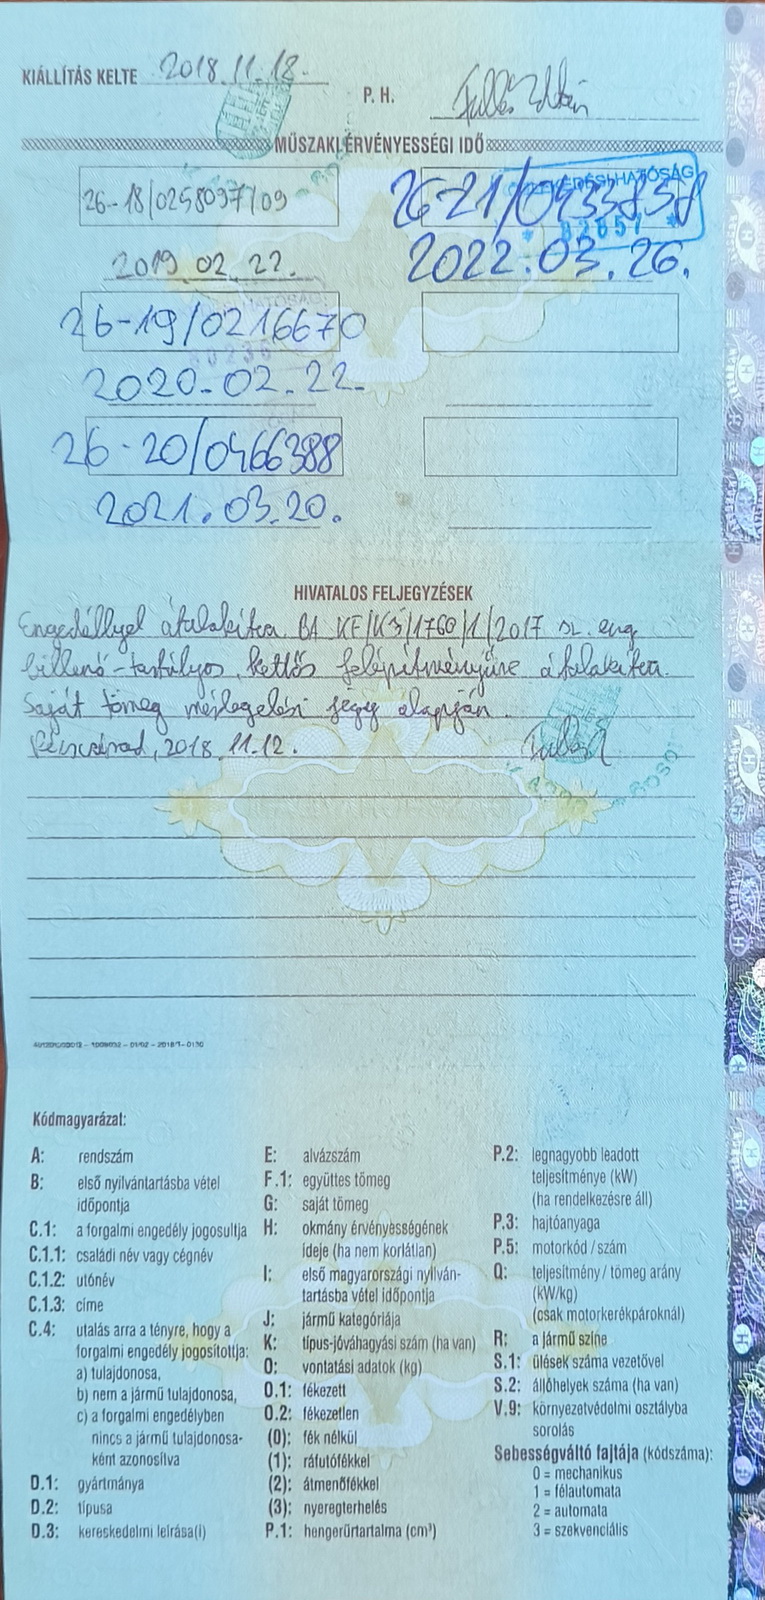 KIÁLLÍTÁS KELTE 2018.11.12.
P. H.
MŰSZAKI ÉRVÉNYESSÉGI IDŐ
26-18/0258097/09
2019.02.22.
26-21/0433858
KÖZLEKEDÉSI HATÓSÁG
2022.03.26.
26-19/0216670
2020.02.22.
26-20/0466388
2021.03.20.
HIVATALOS FELJEGYZÉSEK
Engedéllyel átalakítva. BA KF/KS/1760/1/2017 sz. eng
billenő-tartályos, kettős felépítményűre átalakítva.
Saját tömeg mérlegelési jegy alapján.
2018.11.12.
Kódmagyarázat:
A: rendszám
B: első nyilvántartásba vétel
időpontja
C.1: a forgalmi engedély jogosultja
C.1.1: családi név vagy cégnév
C.1.2: utónév
C.1.3: címe
C.4: utalás arra a tényre, hogy a
forgalmi engedély jogosítottja:
a) tulajdonosa,
b) nem a jármű tulajdonosa,
c) a forgalmi engedélyben
nincs a jármű tulajdonosa-
ként azonosítva
D.1: gyártmánya
D.2: típusa
D.3: kereskedelmi leírása(i)
E: alvázszám
F.1: együttes tömeg
G: saját tömeg
H: okmány érvényességének
ideje (ha nem korlátlan)
I: első magyarországi nyilván-
tartásba vétel időpontja
J: jármű kategóriája
K: típus-jóváhagyási szám (ha van)
O: vontatási adatok (kg)
O.1: fékezett
O.2: fékezetlen
(0): fék nélkül
(1): ráfutófékkel
(2): átmenőfékkel
(3): nyeregterhelés
P.1: hengerűrtartalma (cm³)
P.2: legnagyobb leadott
teljesítménye (kW)
(ha rendelkezésre áll)
P.3: hajtóanyaga
P.5: motorkód / szám
Q: teljesítmény / tömeg arány
(kW/kg)
(csak motorkerékpároknál)
R: a jármű színe
S.1: ülések száma vezetővel
S.2: állóhelyek száma (ha van)
V.9: környezetvédelmi osztályba
sorolás
Sebességváltó fajtája (kódszáma):
0 = mechanikus
1 = félautomata
2 = automata
3 = szekvenciális